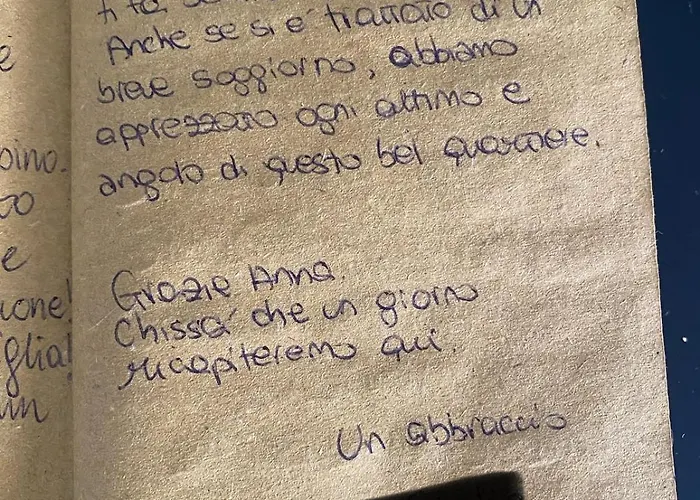 Anche se si é trattato di un
breve soggiorno, abbiamo
apprezzato ogni attimo e
angolo di questo bel quartiere.
Grazie Anna.
Chissá che un giorno
ricapiteremo qui.
Un abbraccio
é
oino.
e
ione!
glia!
un